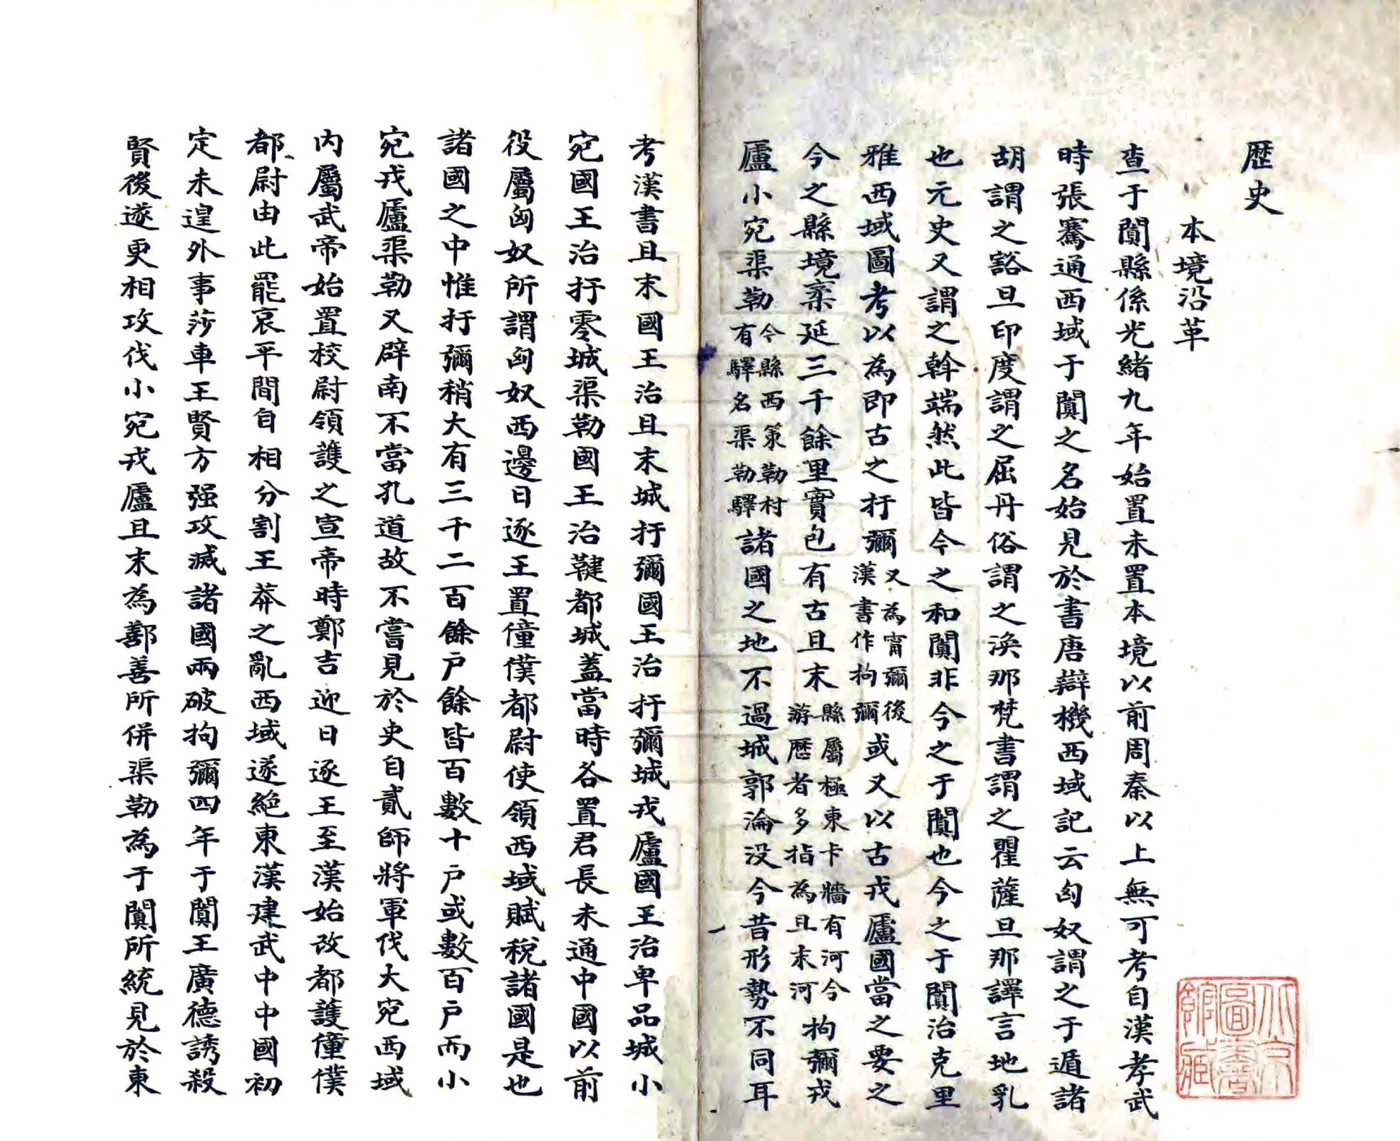 歴史
本境沿革
查于闐縣係光緒九年始置未置本境以前周秦以上無可考自漢孝武
時張騫通西域于闐之名始見於書唐辯機西域記云匈奴謂之于遁諸
胡謂之豁旦印度謂之屈丹俗謂之渙那梵書謂之瞿薩旦那譯言地乳
也元史又謂之斡端然此皆今之和闐非今之于闐也今之于闐治克里
雅西域圖考以為即古之扜彌又為甯彌後漢書作拘彌或又以古戎廬國當之要之
今之縣境袤延三千餘里實包有古且末縣屬極東卡牆有河今游歷者多指為且末河拘彌戎
廬小宛渠勒今縣西策勒村有驛名渠勒驛諸國之地不過城郭淪没今昔形勢不同耳
考漢書且末國王治且末城扜彌國王治扜彌城戎廬國王治卑品城小
宛國王治扜零城渠勒國王治鞬都城蓋當時各置君長未通中國以前
役屬匈奴所謂匈奴西邊日逐王置僮僕都尉使領西域賦稅諸國是也
諸國之中惟扜彌稍大有三千二百餘户餘皆百數十户或數百户而小
宛戎廬渠勒又辟南不當孔道故不嘗見於史自貳師將軍伐大宛西域
内屬武帝始置校尉領護之宣帝時鄭吉迎日逐王至漢始改都護僮僕
都尉由此罷哀平間自相分割王莽之亂西域遂絶東漢建武中中國初
定未遑外事莎車王賢方强攻滅諸國兩破拘彌四年于闐王廣德誘殺
賢後遂更相攻伐小宛戎廬且末為鄯善所併渠勒為于闐所統見於東
北京圖書館藏